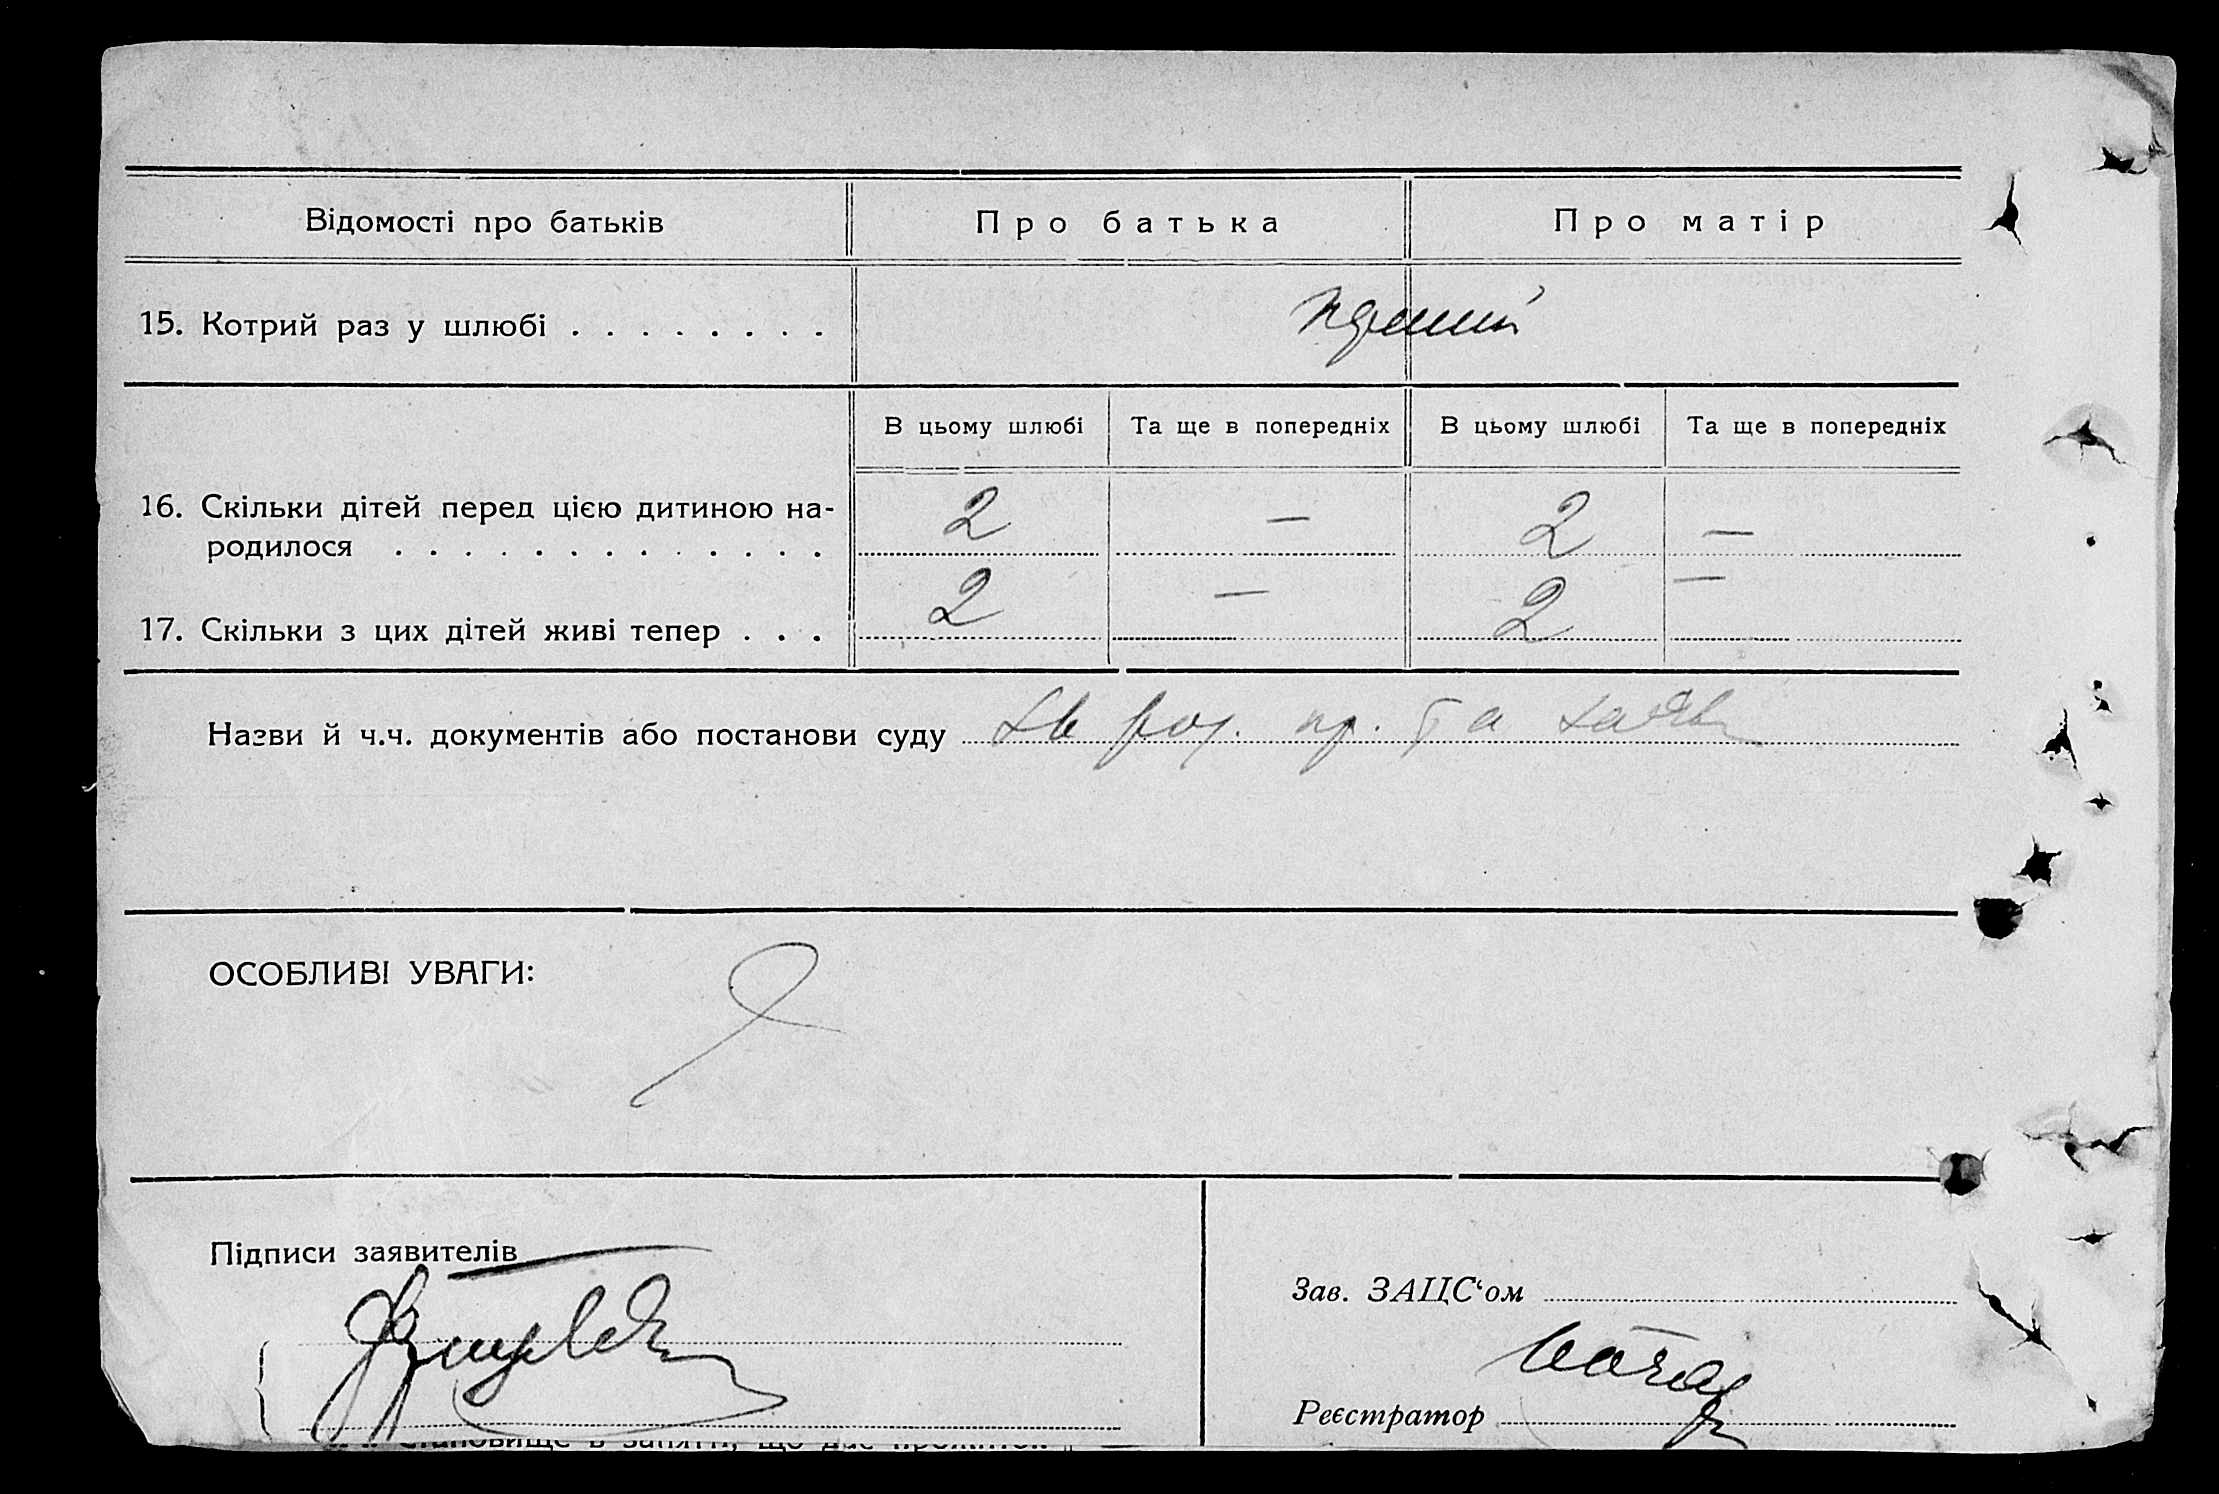 Відомості про батьків
Про батька
Про матір
15. Котрий раз у шлюбі . . . . . . . .
В цьому шлюбі
Та ще в попередніх
В цьому шлюбі
Та ще в попередніх
16. Скільки дітей перед цією дитиною на-
родилося . . . . . . . . . . . . .
2
—
2
—
17. Скільки з цих дітей живі тепер . . .
2
—
2
—
Назви й ч.ч. документів або постанови суду пр. та
ОСОБЛИВІ УВАГИ:
Підписи заявителів
Зав. ЗАЦС‘ом
Реєстратор